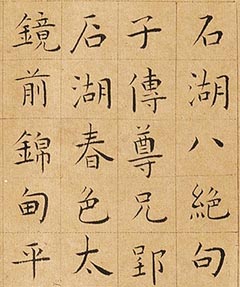 石湖八絕句
子傳尊兄郢
石湖春色太
鏡前錦甸平